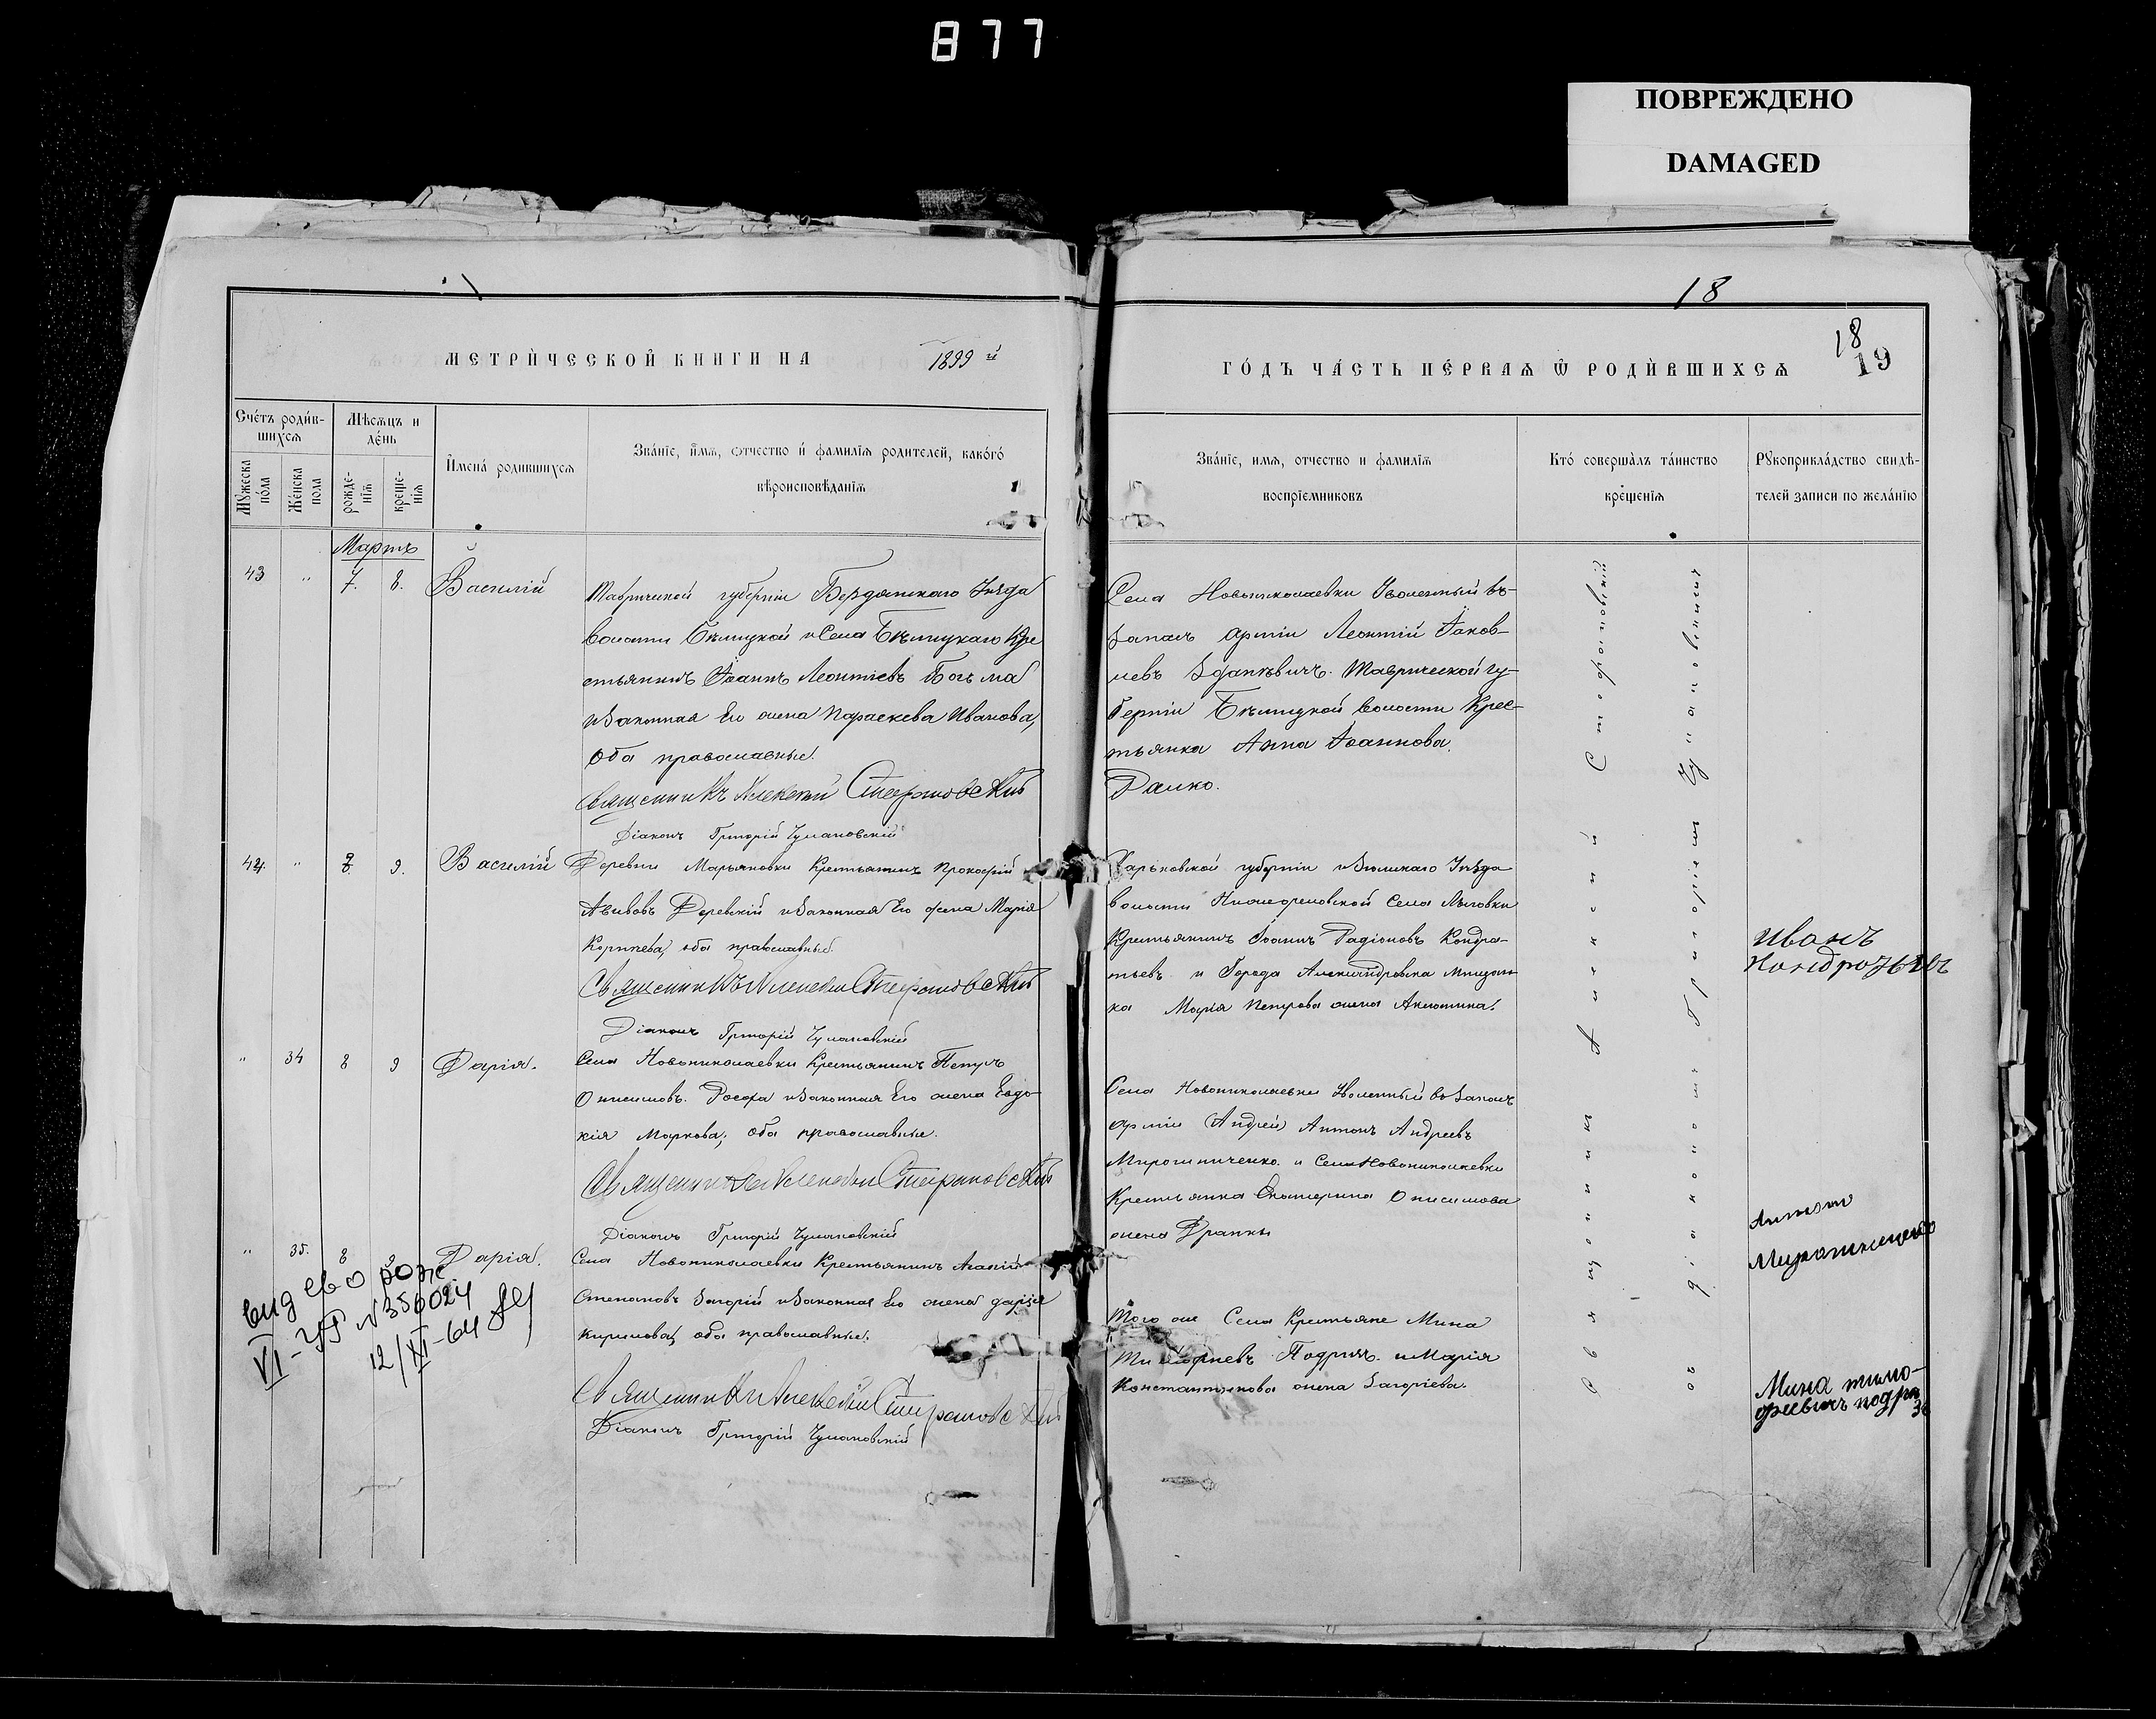 877
ПОВРЕЖДЕНО
DAMAGED
18
18
19
МЕТРИ́ЧЕСКОЙ КНИГИ НА 1899 й
ГО́ДЪ ЧА́СТЬ ПЕ́РВАѦ Ѿ РОДИ́ВШИХСѦ
Сче́тъ роди́в-
шихсѧ
Мѣсѧцъ и
де́нь
Мꙋжеска
по́ла
Же́нска
пола
рожде-
нїѧ
креще-
нїѧ
Имена́ родившихсѧ
Зва́нїе, и́мѧ, ѻтчество и́ фамилїѧ родителей, како́гѡ́
вѣроисповѣ́данїѧ
Зва́нїе, имѧ, отчество и фамилїѧ
воспрїемниковъ
Кто́ соверша́лъ та́инство
креще́нїѧ
Рꙋкоприкла́дство свидѣ-
телей записи по жела́нїю
Мартъ
43 " 7. 8. Василій
Таврической губерніи Бердянскаго Уѣзда
волости и Села Кре
стьянинъ Іоаннъ Леонтіевъ Богъма
и Законная Его жена Параскева Иванова,
оба православные.
Священникъ Алексей Стефановскій
Діаконъ Григорій Чумановскій
Села Новониколаевки Уволенный въ
запасъ Арміи Леонтій Іаков-
левъ Зданѣвичъ. Таврической гу-
берніи волости Крес-
тьянка Анна Іоаннова
44. " 9. Василій
Деревни Марьяновки Крестьянинъ Прокофій
Деревскій и Законная Его жена Марія
оба православные.
Священникъ Алексей Стефановскій
Діаконъ Григорій Чумановскій
Харьковской губерніи Изюмскаго Уѣзда
волости Села
Крестьянинъ Іоаннъ Радіоновъ Кондра-
тьевъ и Города Александровска Мещан-
ка Марія Петрова жена
Иванъ
" 34 8 9 Дарія.
Села Новониколаевки Крестьянинъ Петръ
Онисимовъ. и Законная Его жена Евдо-
кія Маркова, оба православные.
Священникъ Алексей Стефановскій
Діаконъ Григорій Чумановскій
Села Новониколаевки Уволенный въ Запасъ
арміи (Андрей) Антонъ Андреевъ
Мирошниченко. и Села Новониколаевки
Крестьянка Екатерина Онисимова
жена
Антон
Мирошниченко
" 35. 8 9 Дарія.
Села Новониколаевки Крестьянинъ
Степановъ Загорій и Законная Его жена Дарія
Кирилова, оба православные.
Священникъ Алексей Стефановскій
Діаконъ Григорій Чумановскій
Того же Села Крестьяне Мина
Тимофіевъ и Марія
Константинова жена Загоріева.
Мина тимо-
феевичъ
Священникъ Алексей Стефановскій
съ діакономъ Григоріемъ
VI-УР N 356024
12/XI-64